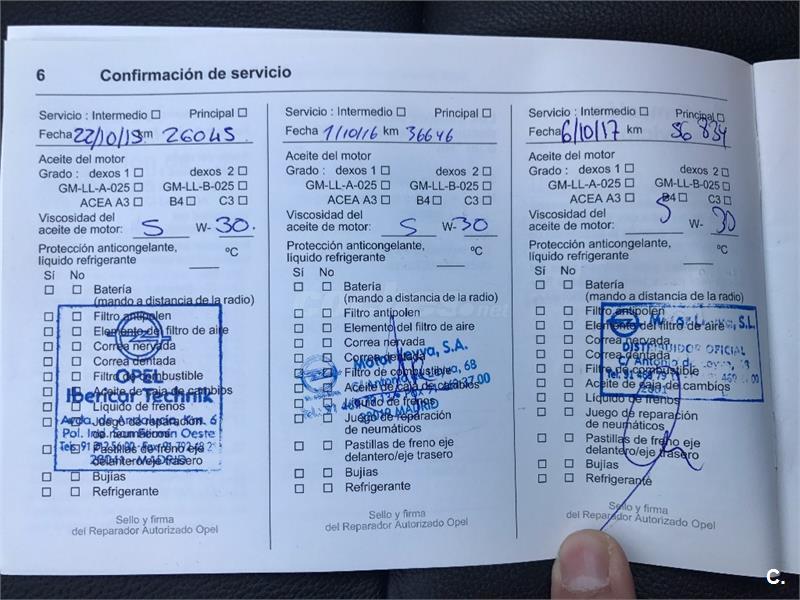 6 Confirmación de servicio
Servicio : Intermedio ☐ Principal ☐
Fecha 22/10/15 km 26045
Aceite del motor
Grado : dexos 1 ☐ dexos 2 ☐
GM-LL-A-025 ☐ GM-LL-B-025 ☐
ACEA A3 ☐ B4 ☐ C3 ☐
Viscosidad del
aceite de motor: 5 W- 30.
Protección anticongelante,
líquido refrigerante ºC
Sí No
☐ ☐ Batería
(mando a distancia de la radio)
☐ ☐ Filtro antipolen
☐ ☐ Elemento del filtro de aire
☐ ☐ Correa nervada
☐ ☐ Correa dentada
☐ ☐ Filtro de combustible
☐ ☐ Aceite de caja de cambios
☐ ☐ Líquido de frenos
☐ ☐ Juego de reparación
de neumáticos
☐ ☐ Pastillas de freno eje
delantero/eje trasero
☐ ☐ Bujías
☐ ☐ Refrigerante
OPEL
Ibericar Technik
Avda. de Andalucía, Km. 6
Pol. Ind. San Oeste
28041 - MADRID
Sello y firma
del Reparador Autorizado Opel
Servicio : Intermedio ☐ Principal ☐
Fecha 1/10/16 km 36646
Aceite del motor
Grado : dexos 1 ☐ dexos 2 ☐
GM-LL-A-025 ☐ GM-LL-B-025 ☐
ACEA A3 ☐ B4 ☐ C3 ☐
Viscosidad del
aceite de motor: 5 W- 30
Protección anticongelante,
líquido refrigerante ºC
Sí No
☐ ☐ Batería
(mando a distancia de la radio)
☐ ☐ Filtro antipolen
☐ ☐ Elemento del filtro de aire
☐ ☐ Correa nervada
☐ ☐ Correa dentada
☐ ☐ Filtro de combustible
☐ ☐ Aceite de caja de cambios
☐ ☐ Líquido de frenos
☐ ☐ Juego de reparación
de neumáticos
☐ ☐ Pastillas de freno eje
delantero/eje trasero
☐ ☐ Bujías
☐ ☐ Refrigerante
Motor Leyva, S.A.
C/ Antonio de Leyva, 68
28019 MADRID
Sello y firma
del Reparador Autorizado Opel
Servicio : Intermedio ☐ Principal ☐
Fecha 6/10/17 km 56 834
Aceite del motor
Grado : dexos 1 ☐ dexos 2 ☐
GM-LL-A-025 ☐ GM-LL-B-025 ☐
ACEA A3 ☐ B4 ☐ C3 ☐
Viscosidad del
aceite de motor: 5 W- 30
Protección anticongelante,
líquido refrigerante ºC
Sí No
☐ ☐ Batería
(mando a distancia de la radio)
☐ ☐ Filtro antipolen
☐ ☐ Elemento del filtro de aire
☐ ☐ Correa nervada
☐ ☐ Correa dentada
☐ ☐ Filtro de combustible
☐ ☐ Aceite de caja de cambios
☐ ☐ Líquido de frenos
☐ ☐ Juego de reparación
de neumáticos
☐ ☐ Pastillas de freno eje
delantero/eje trasero
☐ ☐ Bujías
☐ ☐ Refrigerante
Motor Leyva, S.L.
DISTRIBUIDOR OFICIAL
C/ Antonio de Leyva,
Sello y firma
del Reparador Autorizado Opel
c.